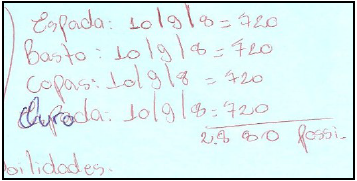 Espada: 10/9/8 = 720
Basto: 10/9/8 = 720
Copas: 10/9/8 = 720
Ouro: 10/9/8 = 720
2880 possi-
bilidades.